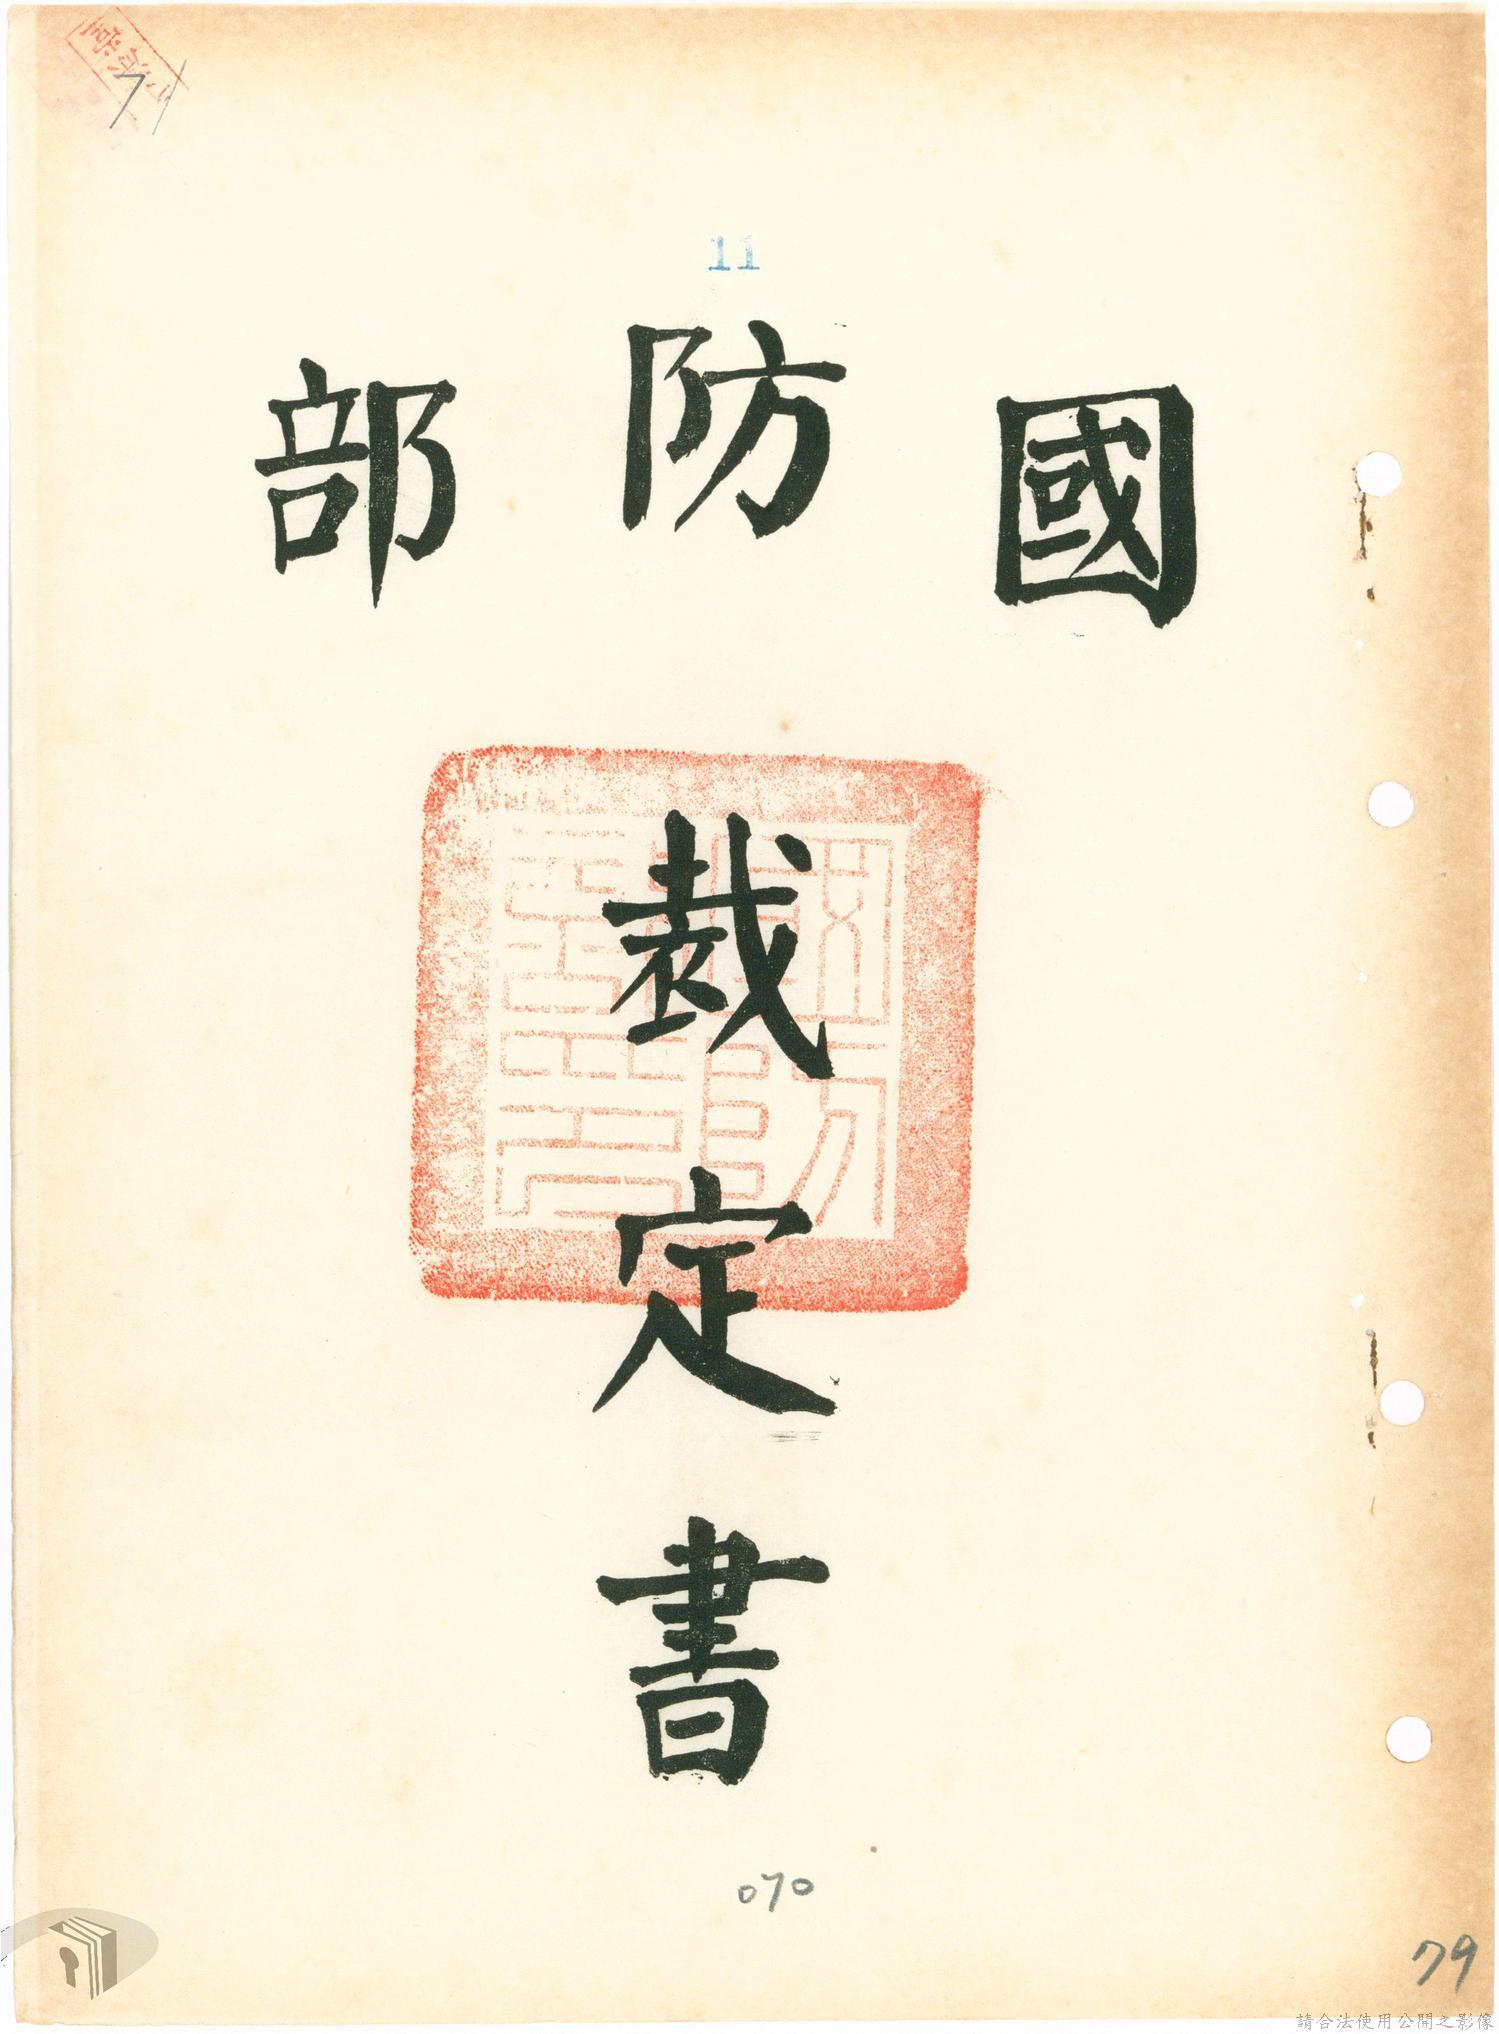 71
11
國防部
裁定書
070
79
請合法使用公開之影像